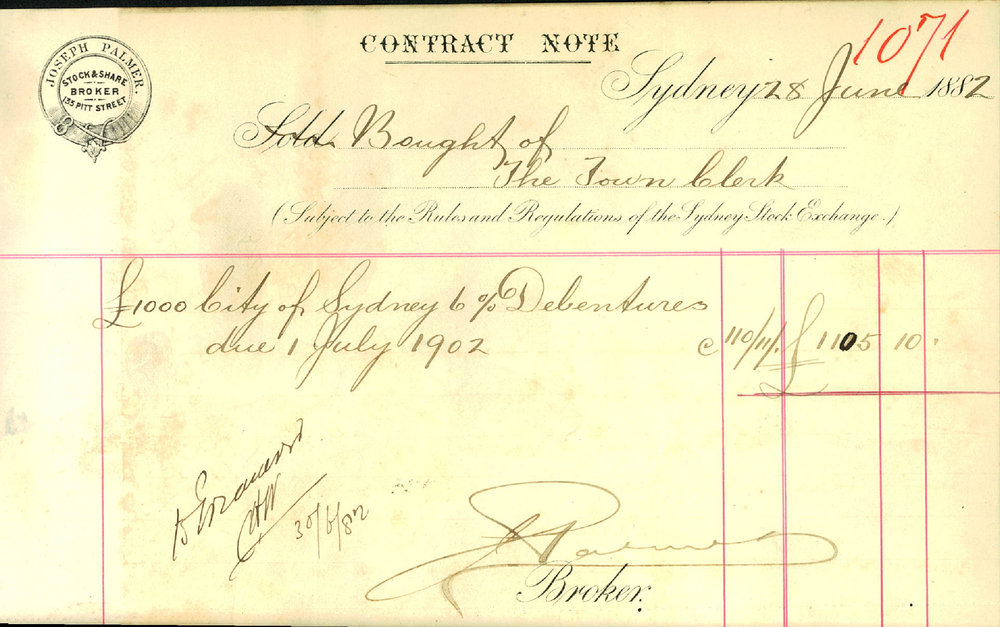 1071
CONTRACT NOTE
JOSEPH PALMER.
STOCK & SHARE
BROKER
133 PITT STREET
Sydney 28 June 1882
Sold Bought of
The Town Clerk
(Subject to the Rules and Regulations of the Sydney Stock Exchange.)
£1000 City of Sydney 6% Debentures
due 1 July 1902 @ 110/11/. £ 1105 10 .
30/6/82
J Palmer
Broker.